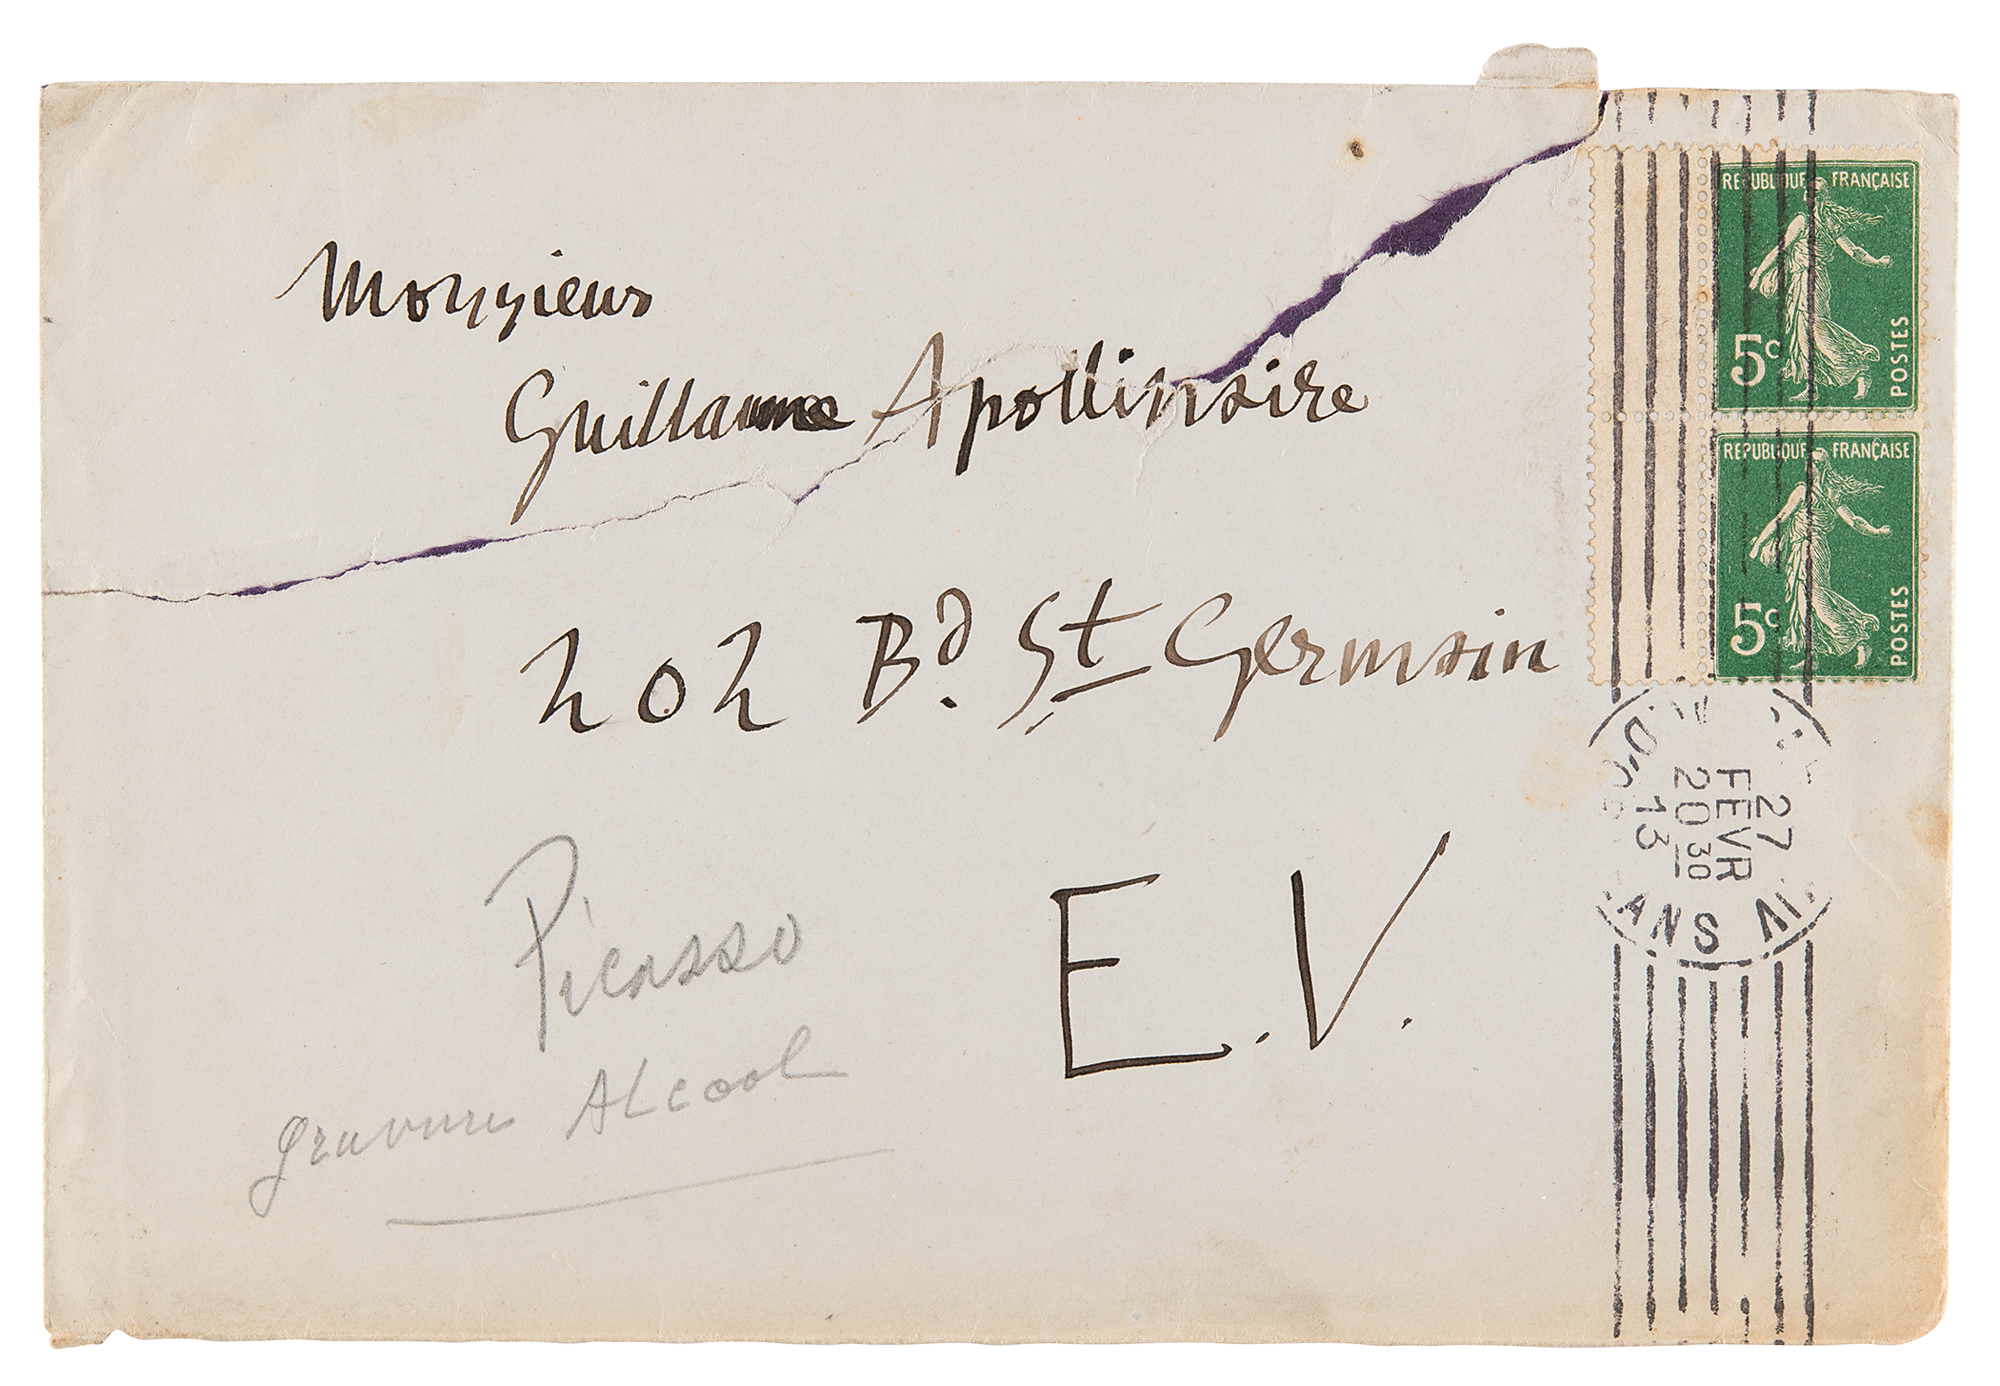 Monsieur
Guillaume Apollinaire
202 Bd. St Germain
E.V.
Picasso
gravure Alcool
REPUBLIQUE FRANÇAISE
5c
POSTES
REPUBLIQUE FRANÇAISE
5c
POSTES
27
FEVR
20 30
13